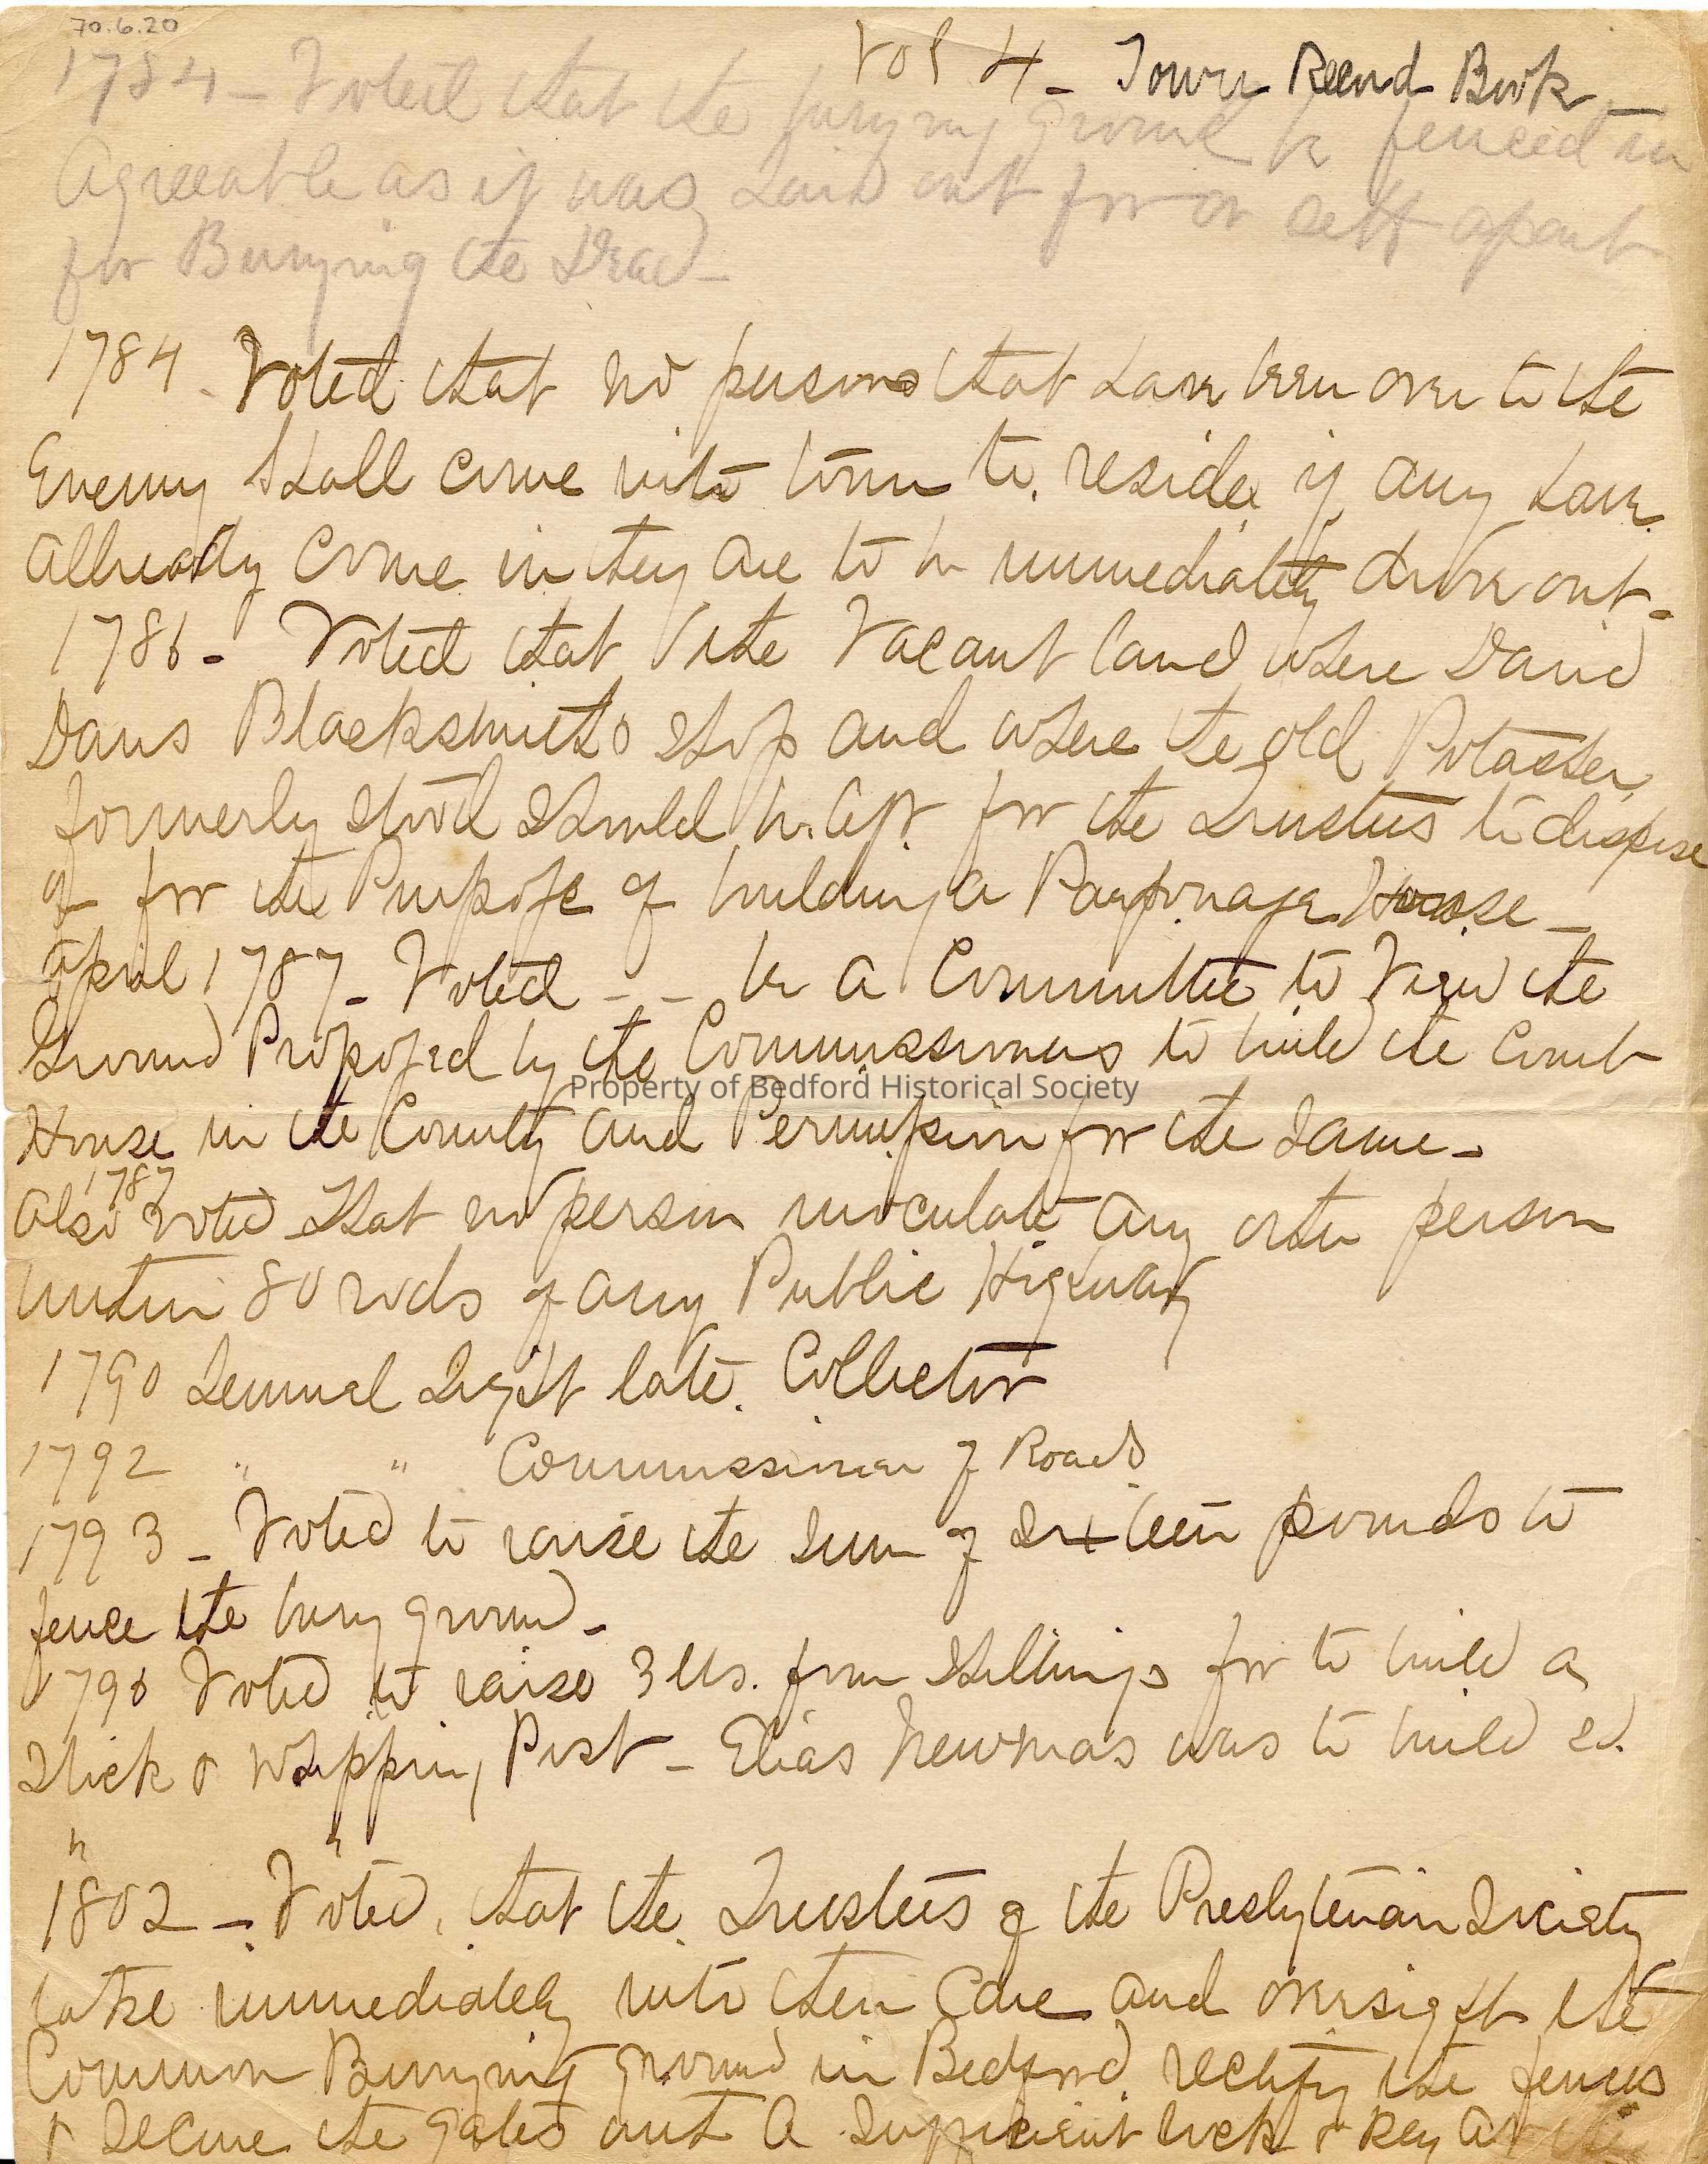 70.6.20
Vol 4 - Town Record Book -
1784 - Voted that the burying ground be fenced in
Agreeable as it was laid out for or sett apart
for Burying the Dead -
1784 - Voted that no persons that have been over to the
Enemy Shall come into town to reside if any have
allready come in they are to be immediately drove out -
1786 - Voted that the Vacant land where David
Davis Blacksmiths shop and where the old Potasher
formerly stood Should be left for the Trustees to dispose
of for the Purpose of building a Parsonage House -
April 1787 - Voted - - be a Committee to View the
Ground Proposed by the Commissioners to build the Court
House in the County and Permission for the Same -
1787
Also voted That no person inoculate any other person
within 80 rods of any Public Highway
1790 Lemuel Light late Collector
1792 " " Commissioner of Roads
1793 - Voted to raise the Sum of Sixteen pounds to
fence the bury ground -
1790 Voted to raise 3 lbs. four Shillings for to build a
Stick & Whipping Post - Elias Newmas was to build ed.
" "
1802 - Voted, that the Trustees of the Presbyterian Society
take immediately into their Care and oversight the
Common Burying ground in Bedford rectify the fences
& Secure the gates with a Sufficient lock & key at the
Property of Bedford Historical Society